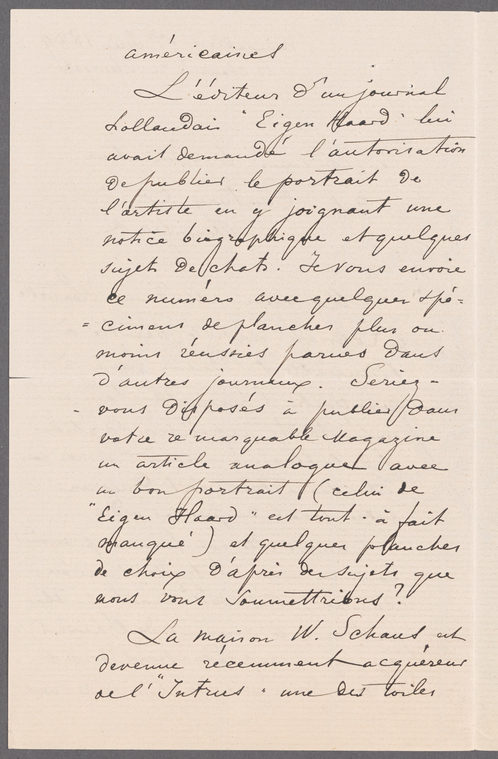 américaines
L'éditeur d'un journal
hollandais "Eigen Haard" lui
avait demandé l'autorisation
de publier le portrait de
l'artiste en y joignant une
notice biographique et quelques
sujets de chats. Je vous envoie
ce numéro avec quelques spé=
=cimens de planches plus ou
moins réussies parues dans
d'autres journaux. Seriez-
-vous disposés à publier dans
votre remarquable Magazine
un article analogue avec
un bon portrait (celui de
"Eigen Haard" est tout-à fait
manqué) et quelques planches
de choix d'après des sujets que
nous vous soumettrions?
La maison W. Schaus est
devenue récemment acquéreur
de l'"Intrus" une des toiles